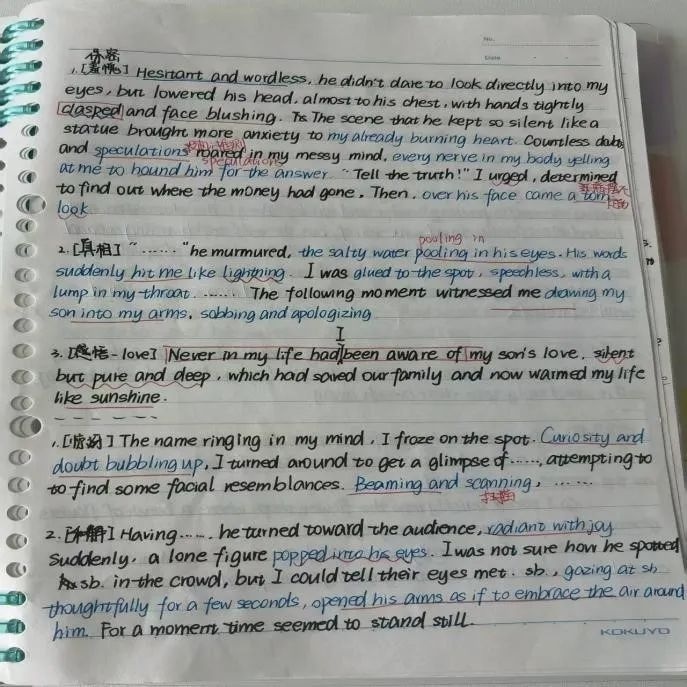 No.
Date
1. [羞愧] Hesitant and wordless, he didn't dare to look directly into my
eyes, but lowered his head, almost to his chest, with hands tightly
clasped and face blushing. The scene that he kept so silent like a
statue brought more anxiety to my already burning heart. Countless
and speculations roared in my messy mind, every nerve in my body yelling
speculations
at me to hound him for the answer. "Tell the truth!" I urged, determined
to find out where the money had gone. Then, over his face came a torn
look.
pooling in
2. [真相] "......" he murmured, the salty water pooling in his eyes. His words
suddenly hit me like lightning. I was glued to the spot, speechless, with a
lump in my throat. ...... The following moment witnessed me drawing my
son into my arms, sobbing and apologizing
3. [感悟-love] Never in my life had been aware of my son's love, silent
but pure and deep, which had saved our family and now warmed my life
like sunshine.
1. [] The name ringing in my mind, I froze on the spot. Curiosity and
doubt bubbling up, I turned around to get a glimpse of ......, attempting to
to find some facial resemblances. Beaming and scanning, ......
扫描
2. [] Having ......, he turned toward the audience, radiant with joy
Suddenly, a lone figure popped into his eyes. I was not sure how he spotted
sb. in the crowd, but I could tell their eyes met. sb., gazing at sb
thoughtfully for a few seconds, opened his arms as if to embrace the air around
him. For a moment time seemed to stand still.
KOKUYO